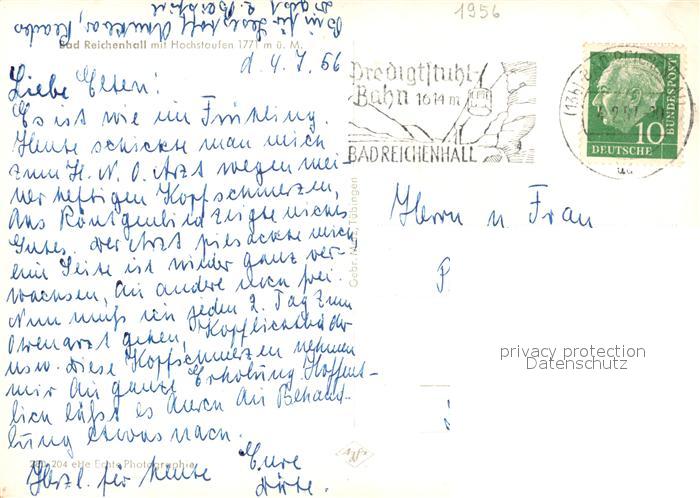 1956
Bad Reichenhall mit Hochstaufen 1771 m ü. M.
d. 4. 7. 56
Liebe Elten!
Es ist wie im Frühling.
Heute schickte man mich
zum H. N. O. Arzt wegen mei-
ner heftigen Kopfschmerzen,
das Röntgenbild zeigte nichts
Gutes. Der Arzt piesackte mich
eine Seite ist wieder ganz ver-
wachsen, die andere noch frei.
Nun muß ich jeden 2. Tag zum
Ohrenarzt gehen, Kopflichtbäder
usw. Diese Kopfschmerzen nehmen
mir die ganze Erholung. Hoffent-
lich läßt es durch die Behand-
lung etwas nach.
Herzl. für heute Eure
204 elte Echte Photographie
Gebr. Metz, Tübingen
Predigtstuhl-
Bahn 1614 m
BAD REICHENHALL
DEUTSCHE BUNDESPOST
10
Herrn u Frau
P.
privacy protection
Datenschutz